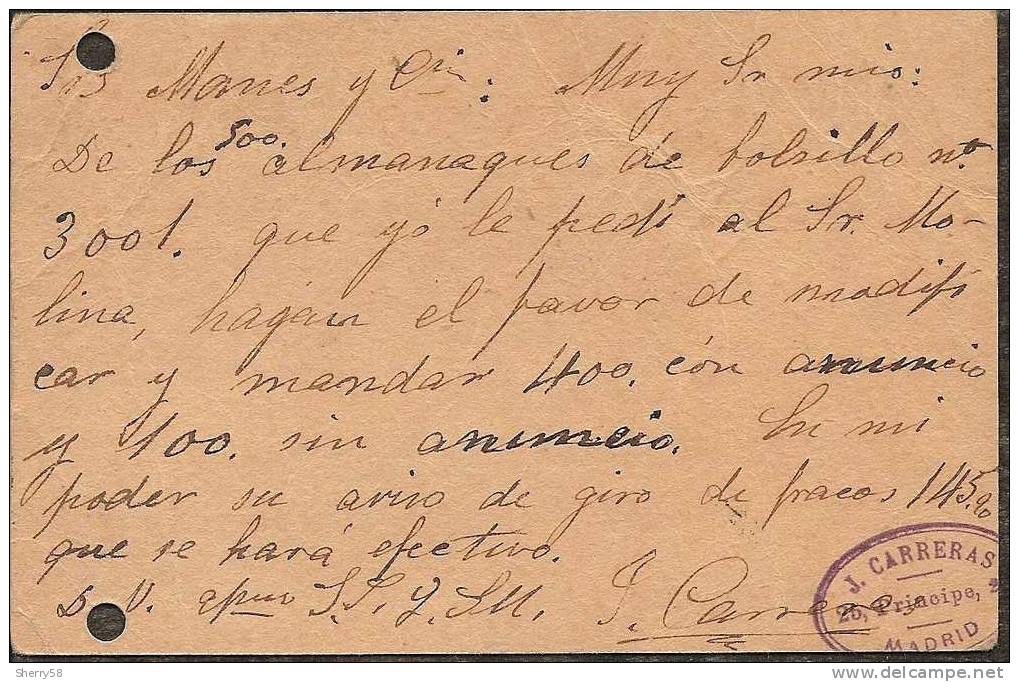 Srs Manes y Cia: Muy Sr mio:
De los 500. almanaques de bolsillo nº
3001. que yó le pedí al Sr. Mo-
lina, hagan el favor de modifi
car y mandar 400. cón anuncio
y 100. sin anuncio. En mi
poder su aviso de giro de fracos 145.90
que se hará efectivo.
D V. S.S. q. S.M. J. Carreras
J. CARRERAS
25, Principe, 2
MADRID
Sherry58
delcampe.net